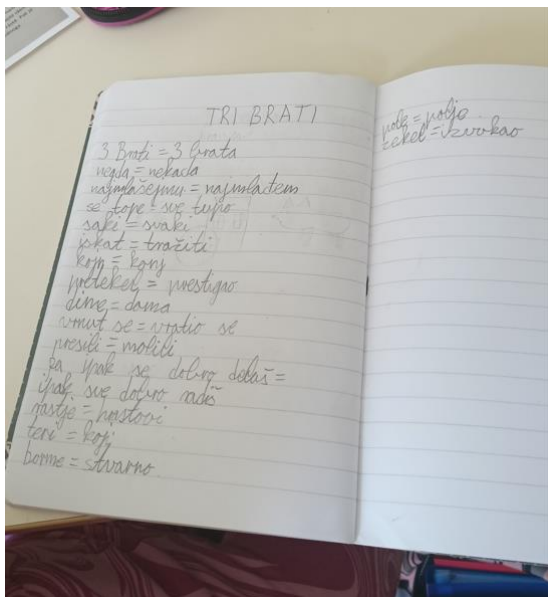 TRI BRATI
3 Brati = 3 brata
negda = nekada
najmlašejmu = najmlađem
se tope = sve tupo
saki = svaki
iskat = tražiti
kojn = konj
pretekel = prestigao
dime = doma
vrnut se = vratio se
prositi = moliti
pa ipak se dobro delaš =
ipak sve dobro radiš
rastje = hrastovi
teri = koji
borme = stvarno
pole = polje
zekel = izvukao